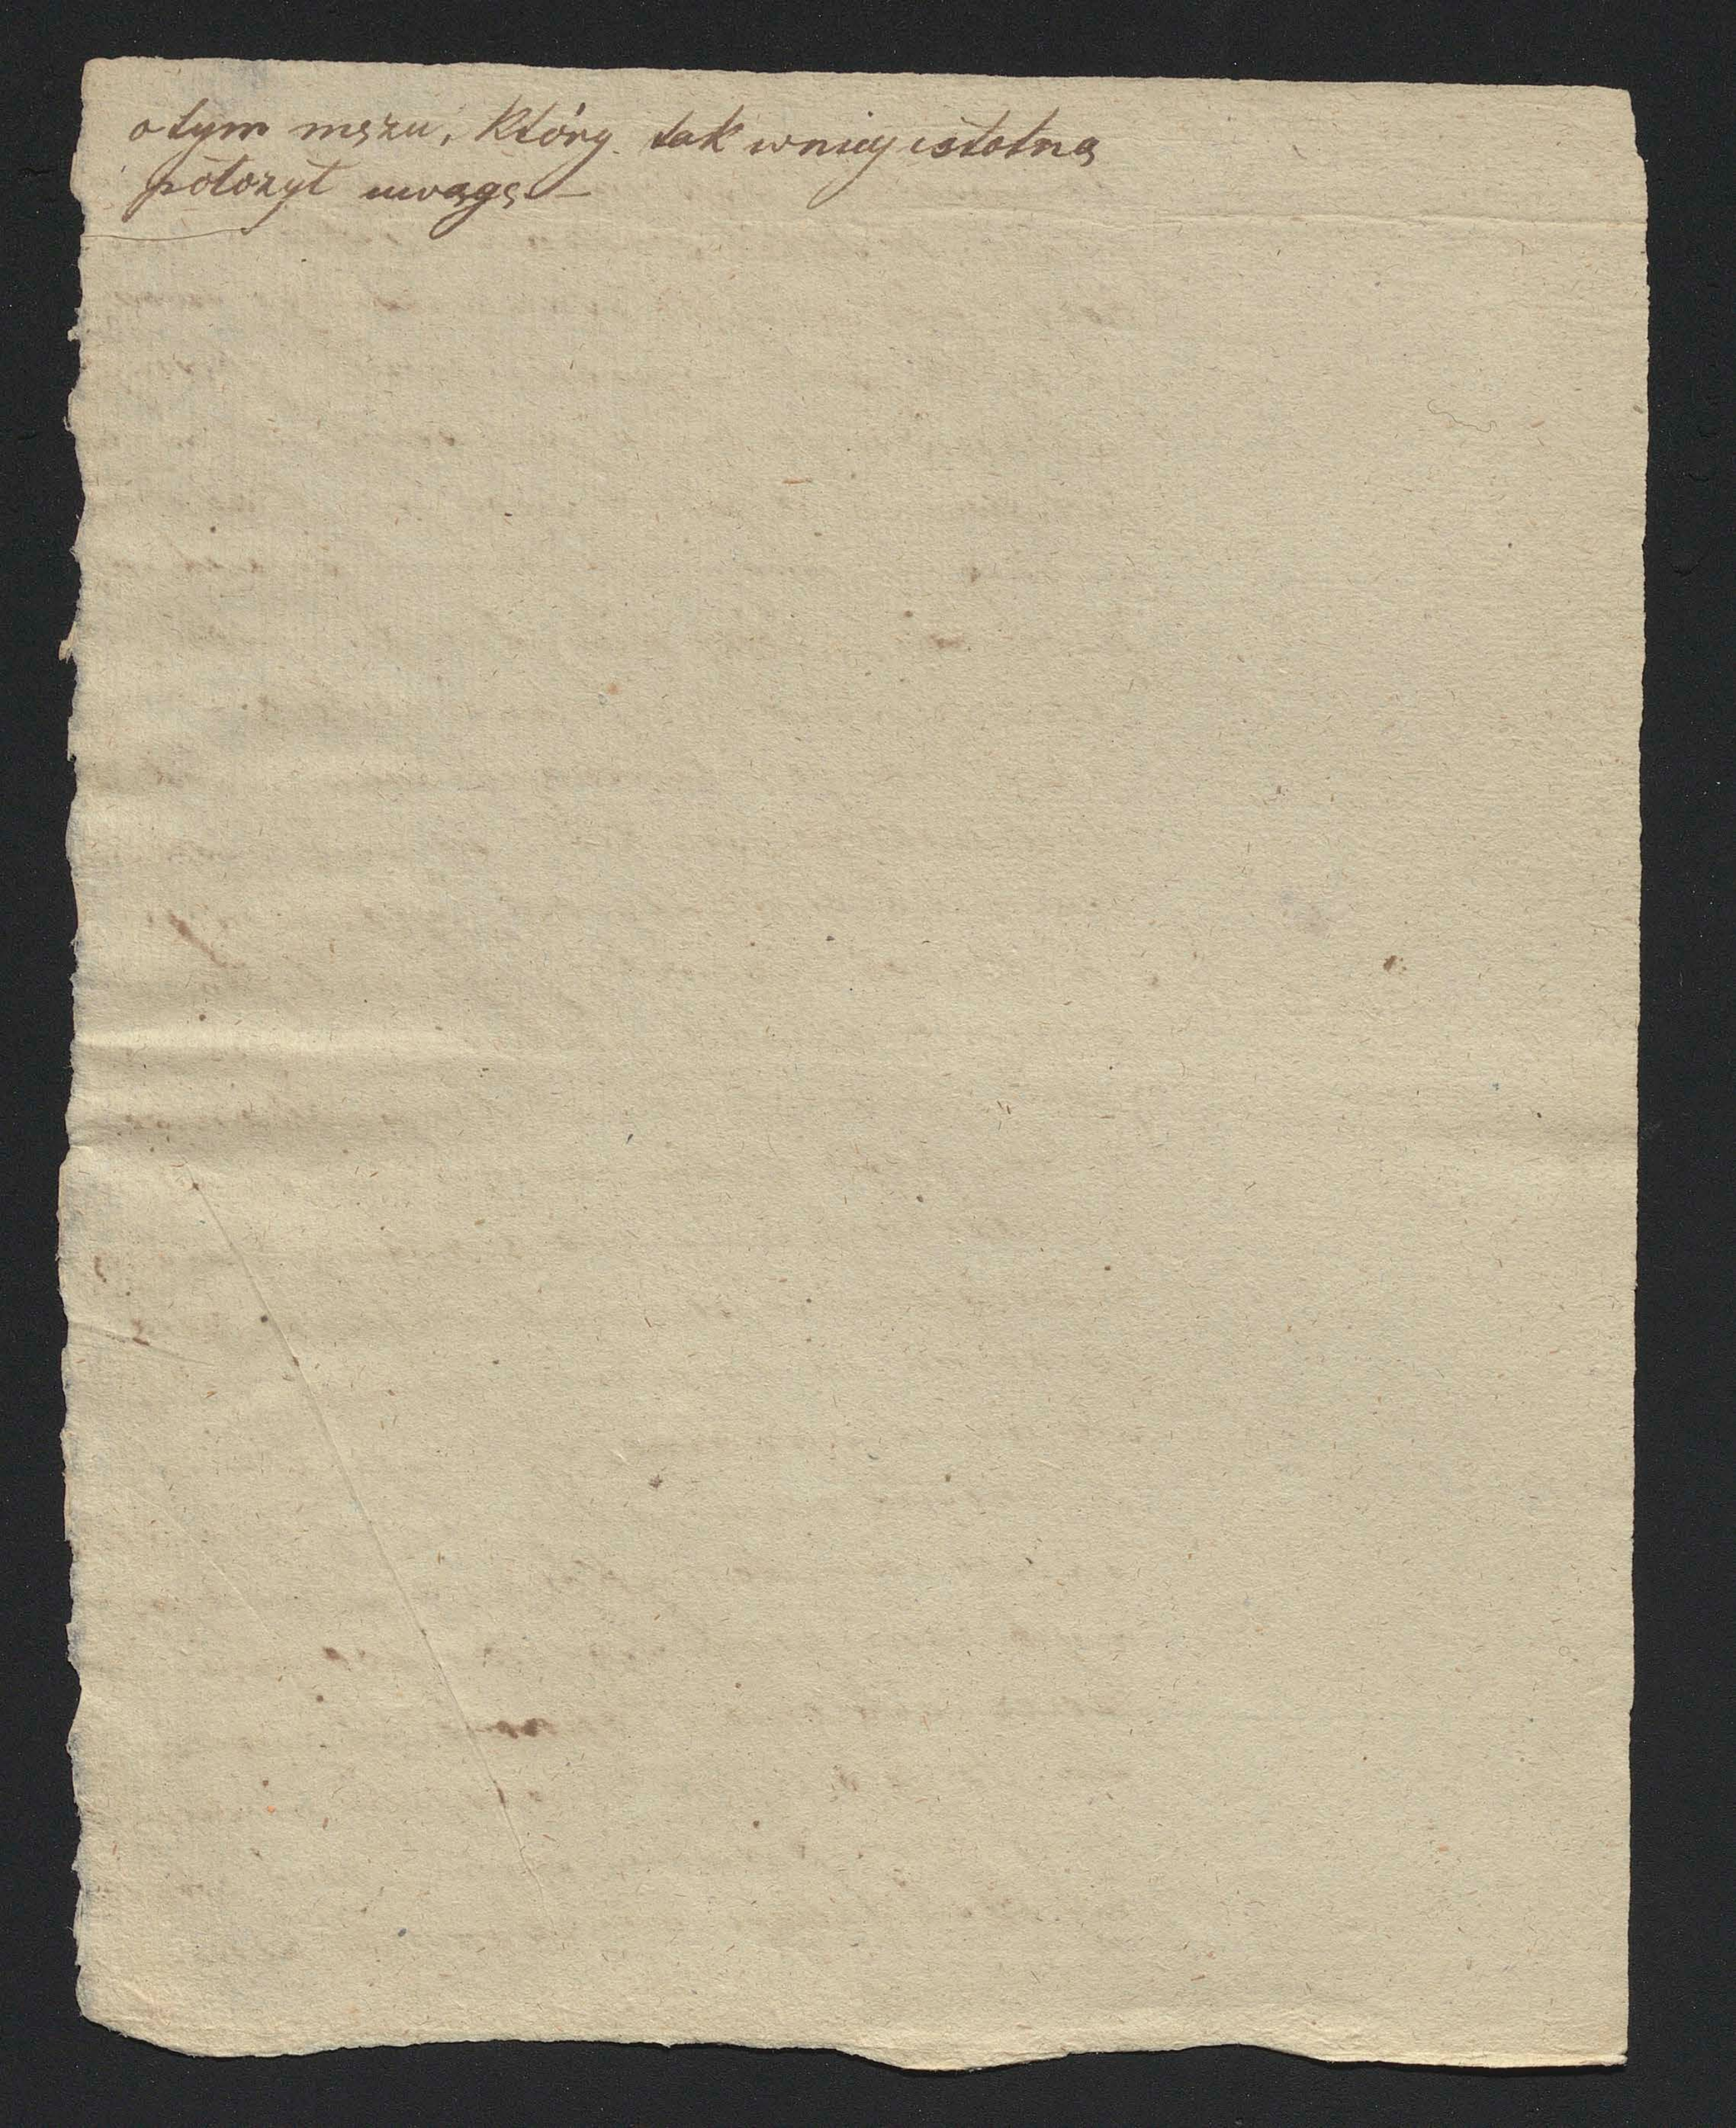 o tym mężu, który tak w niey istotną
położył uwagę. —